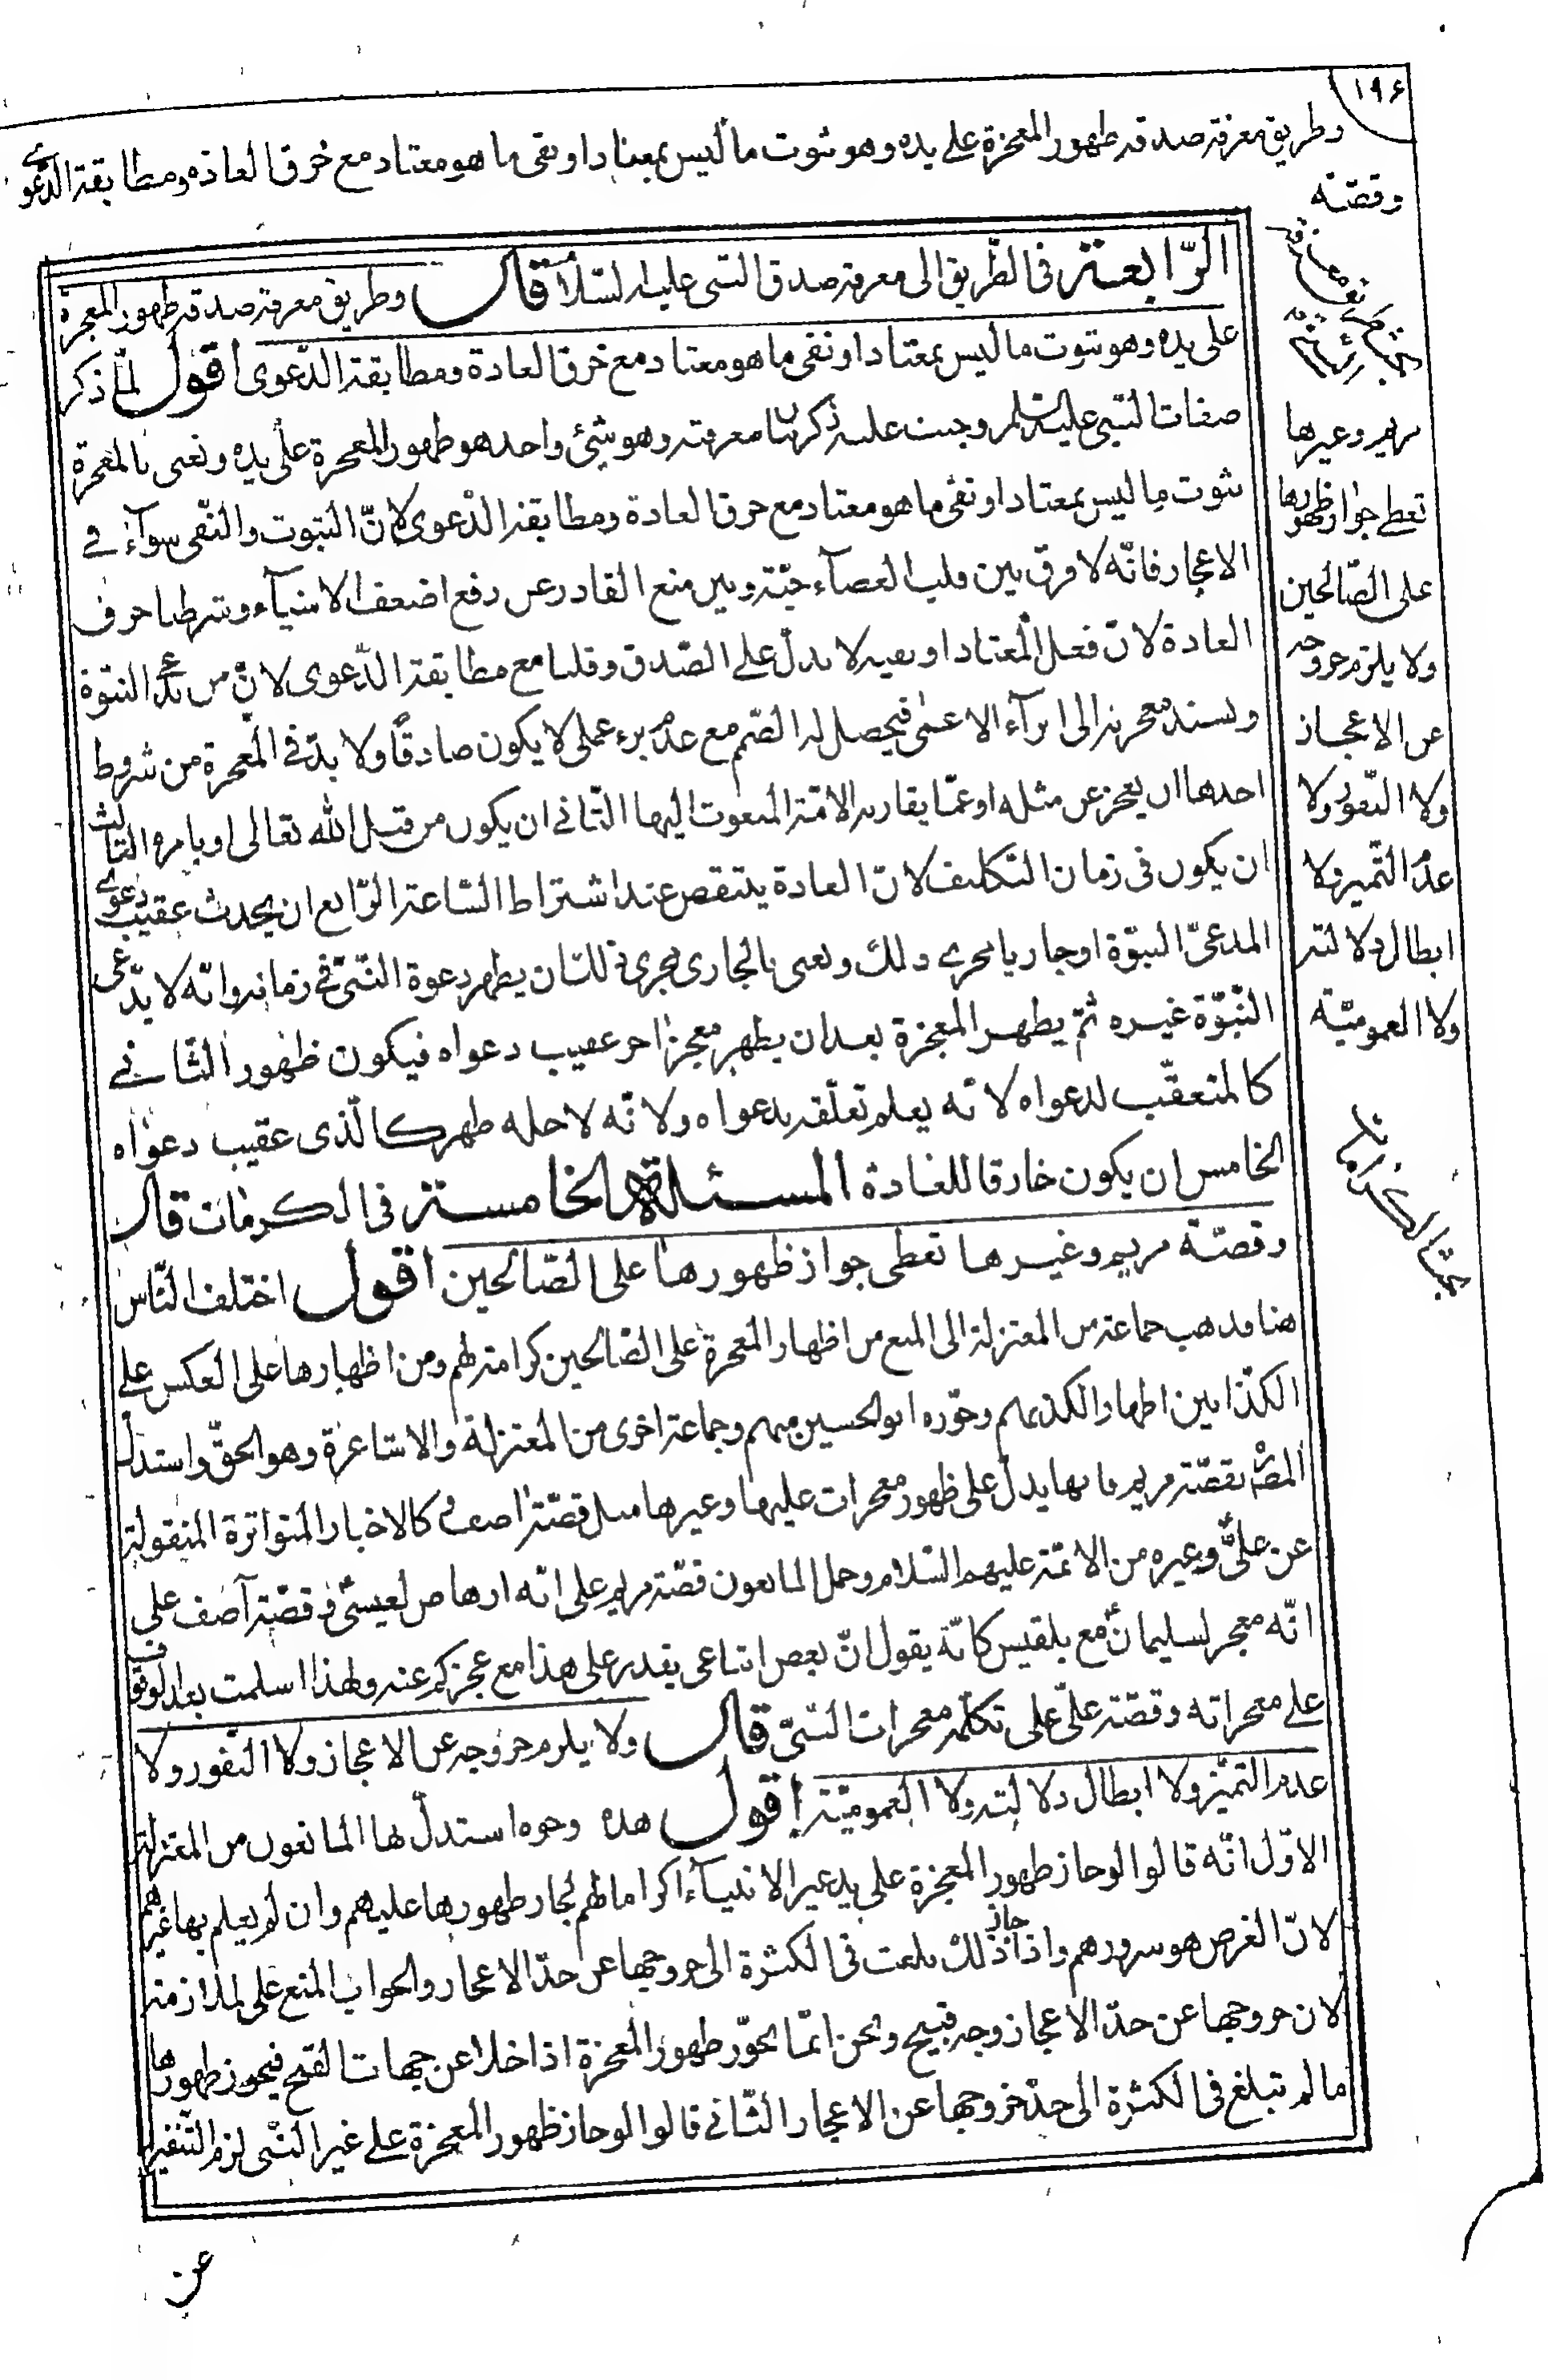 ١٩۶
وطريق معرفة صدقه ظهور المعجزة على يده وهو ثبوت ما ليس بمعتاد او نفى ما هو معتاد مع خرق العادة ومطابقة الدعوى
وقصّة
مريم وغيرها
تعطى جواز ظهورها
على الصّالحين
ولا يلزم خروجه
عن الاعجاز
ولا النّفور ولا
عدم التّميز ولا
ابطال دلالته
ولا العموميّة
بحث الكرامات
الرّابعة فى الطّريق الى معرفة صدق النّبى عليه السّلام قال وطريق معرفة صدقه ظهور المعجزة
على يده وهو ثبوت ما ليس بمعتاد او نفى ما هو معتاد مع خرق العادة ومطابقة الدّعوى اقول لمّا ذكر
صفات النّبى عليه السلم وجب عليه ذكر بيان معرفته وهو شئ واحد هو ظهور المعجزة على يده ونعنى بالمعجزة
ثبوت ما ليس بمعتاد او نفى ما هو معتاد مع خرق العادة ومطابقة الدّعوى لانّ الثبوت والنّفى سوآء فى
الاعجاز فانّه لا فرق بين قلب العصآء حيّة وبين منع القادر عن رفع اضعف الاشيآء وشرطنا خرق
العادة لانّ فعل المعتاد او نفيه لا يدلّ على الصّدق وقلنا مع مطابقة الدّعوى لانّ من يدّعى النبوّة
ويسند معجزته الى ابرآء الاعمى فيحصل له الصّم مع عدم برء عملى لا يكون صادقًا ولا بدّ فى المعجزة من شروط
احدها ان يعجز عن مثله او عمّا يقاربه الامّة المبعوث اليها الثّانى ان يكون من قبل الله تعالى او بامره الثالث
ان يكون فى زمان التّكليف لانّ العادة ينتقض عند اشتراط السّاعة الرّابع ان يحدث عقيب دعوى
المدعىّ النبوّة او جاريا مجرى ذلك ونعنى بالجارى مجرى ذلك ان يظهر دعوة النّبىّ فى زمانه وانّه لا يدّعى
النّبوّة غيره ثمّ يظهر المعجزة بعد ان يظهر معجز اخر عقيب دعواه فيكون ظهور الثّانى
كالمتعقّب لدعواه لانّه يعلم تعلّقه بدعواه ولانّه لاجله ظهر كالّذى عقيب دعواه
الخامس ان يكون خارقا للعادة المسئلة الخامسة فى الكرمات قال
وقصّة مريم وغيرها تعطى جواز ظهورها على الصّالحين اقول اختلف النّاس
هنا فذهب جماعة من المعتزلة الى المنع من اظهار المعجزة على الصّالحين كرامة لهم ومن اظهارها على العكس على
الكذّابين اظهارا لكذبهم وجوّزه ابو الحسين منهم وجماعة اخرى من المعتزلة والاشاعرة وهو الحقّ واستدلّ
المصره بقصّة مريم فانها يدلّ على ظهور معجزات عليها وغيرها مثل قصّة اصف وكالاخبار المتواترة المنقولة
عن علىّ وغيره من الائمّة عليهم السّلام وحمل المانعون قصّة مريم على انّه ارهاص لعيسى وقصّة آصف على
انّه معجز لسليمان مع بلقيس كانّه يقول انّ بعض اتباعى يقدر على هذا مع عجزكم عنه ولهذا اسلمت بعد الوقوف
على معجزاته وقصّة علىّ على تكلمة معجزات النّبىّ قال ولا يلزم خروجه عن الاعجاز ولا النّفور ولا
عدم التميّز ولا ابطال دلالته ولا العموميّة اقول هذه وجوه استدلّ لها المانعون من المعتزلة
الاوّل انّه قالوا لو جاز ظهور المعجزة على يد غير الانبيآء اكراما لهم لجاز ظهورها عليهم وان لم يعلم بها غيرهم
لانّ الغرض هو سرورهم واذا جاز ذلك بلغت فى الكثرة الى خروجها عن حدّ الاعجاز والجواب المنع على الملازمة
لان خروجها عن حدّ الاعجاز وجه قبيح ونحن انّما نجوّز ظهور المعجزة اذا خلا عن جهات القبح فيجوز ظهورها
ما لم تبلغ فى الكثرة الى حدّ خروجها عن الاعجاز الثّانى قالوا لو جاز ظهور المعجزة على غير النّبى لزم التّنفير
عن